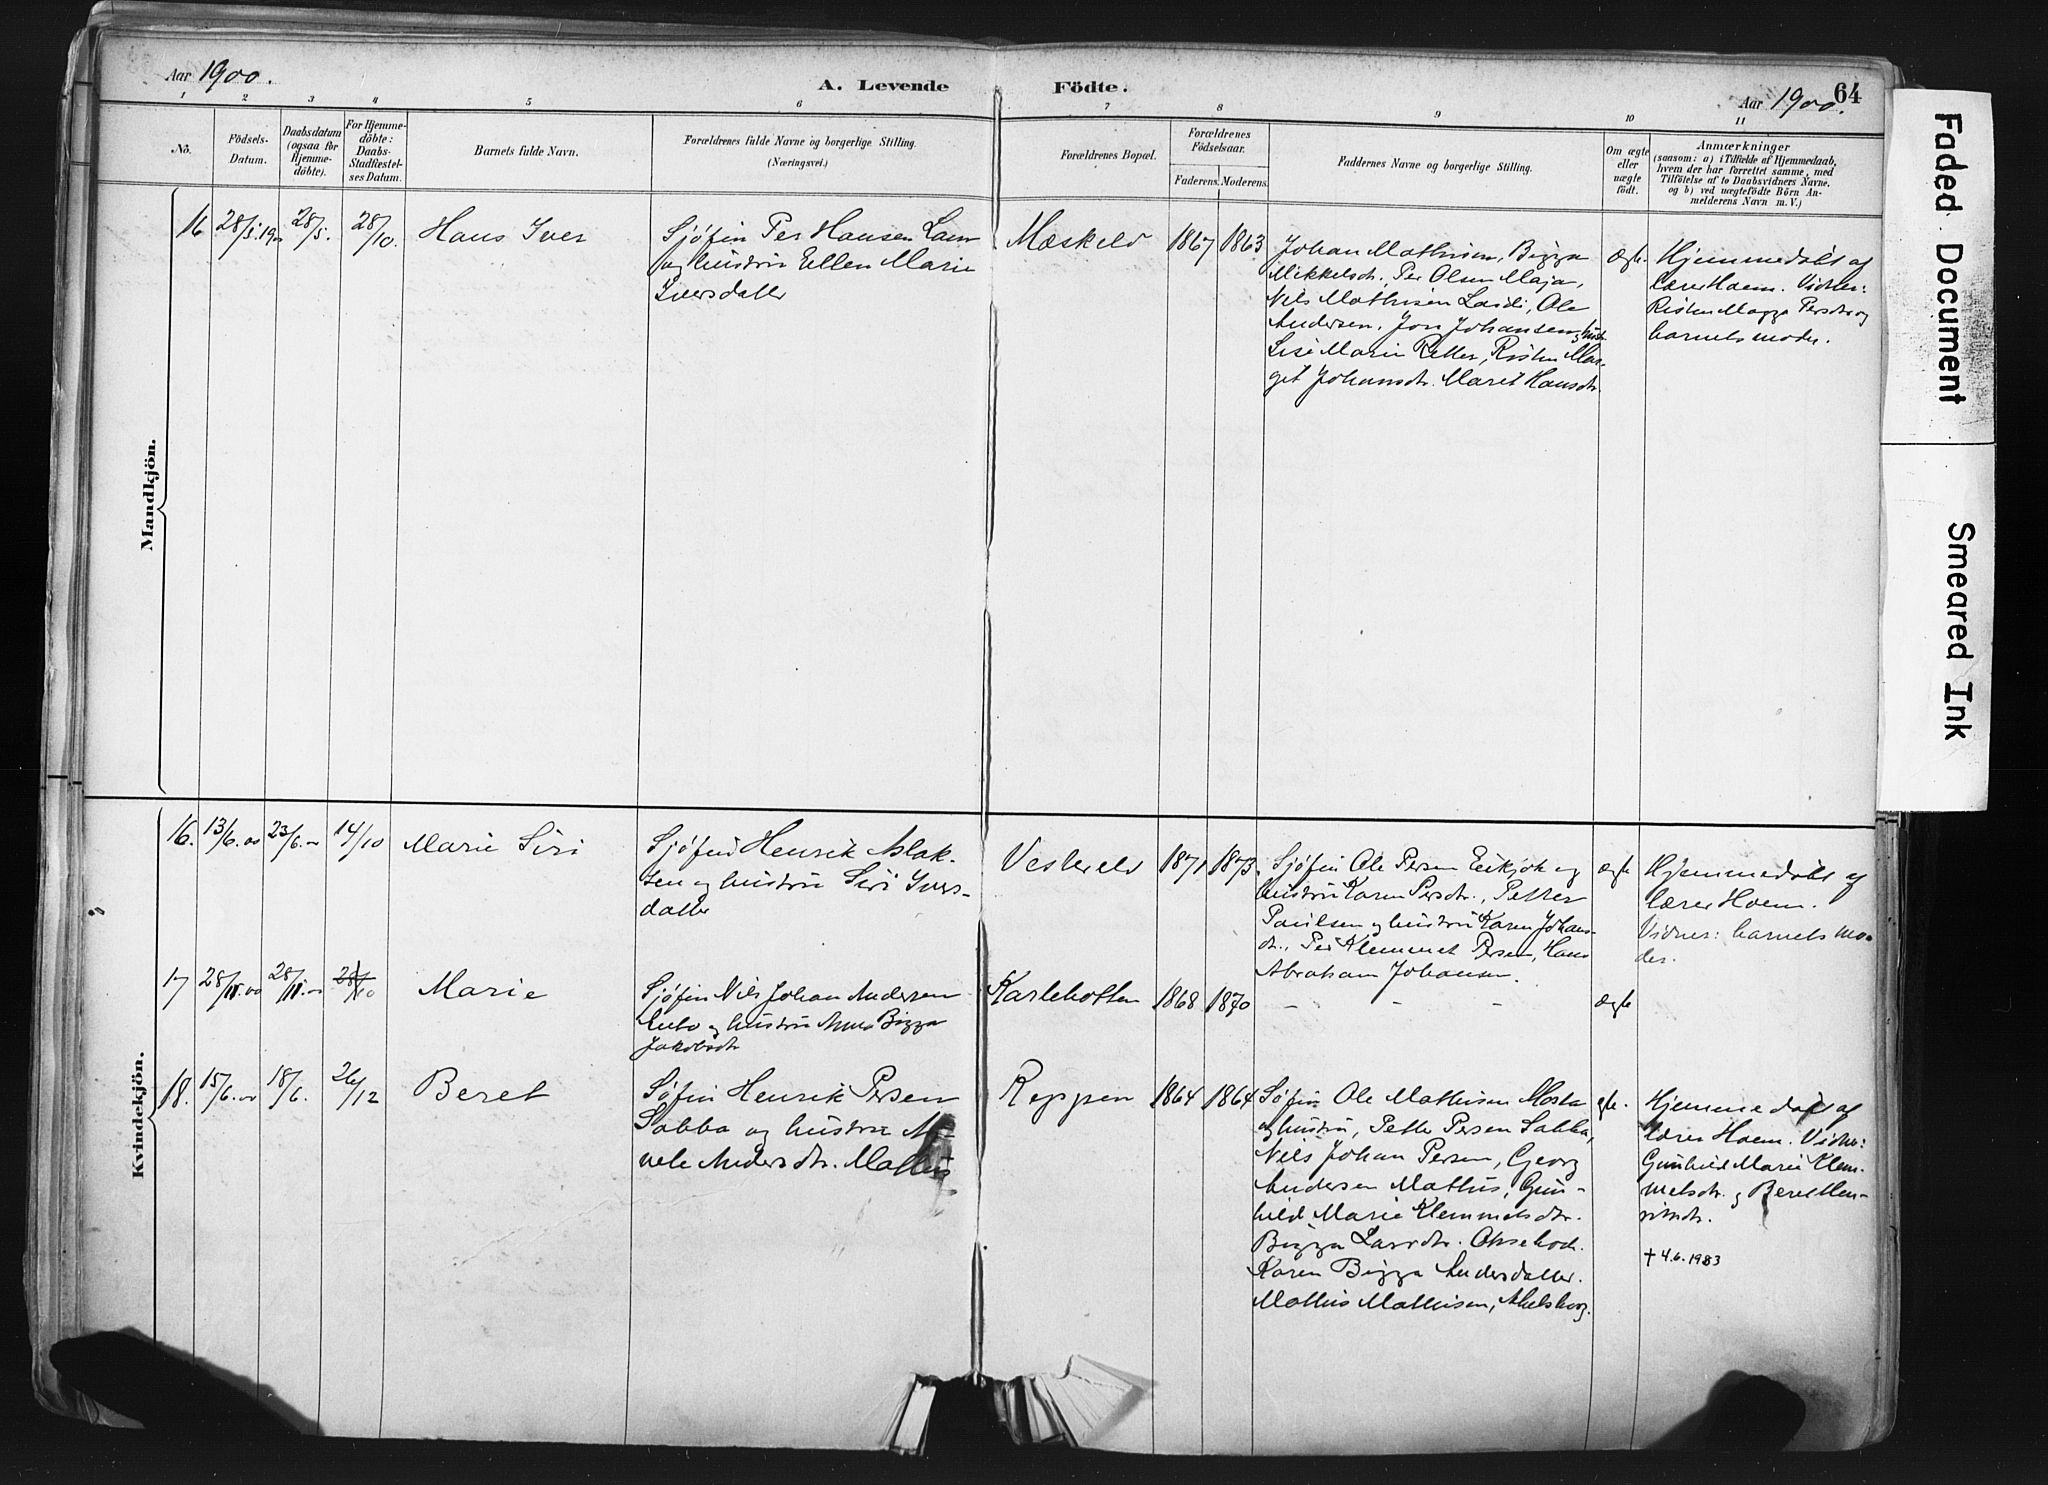 Aar 1900.
A. Levende Födte.
Aar 1900.
64
1 2 3 4 5 6 7 8 9 10 11
No.
Födsels-
Datum.
Daabsdatum
(ogsaa for
Hjemme-
döbte).
For Hjemme-
döbte:
Daabs-
Stadfæstel-
ses Datum.
Barnets fulde Navn.
Forældrenes fulde Navne og borgerlige Stilling.
(Næringsvei.)
Forældrenes Bopæl.
Forældrenes
Födselsaar.
Faderens. Moderens.
Faddernes Navne og borgerlige Stilling.
Om ægte
eller
uægte
födt.
Anmærkninger
(saasom: a) i Tilfælde af Hjemmedaab,
hvem der har forrettet samme, med
Tilföielse af to Daabsvidners Navne.
og b) ved uægtefödte Börn An-
melderens Navn m. V.)
Mandkjön.
16 28/5.1900 28/5. 28/10.
Hans Iver
Sjøfin Per Hansen
og hustru Ellen Marie
Iversdatter
Mæskelv
1867 1863
Johan Mathisen, Bigga
Mikkelsdr. Per Olsen Maja,
Nils Mathisen Ole
Andersen. Jon Johansen, hustr.
Marie Risten Mar-
get Johansdr. Marit Hansdr.
ægte.
Hjemmedøbt af
lærer Hoem. Vidner:
Risten Magga Persdr og
barnets moder.
Kvindekjön.
16. 13/6.00 23/6. 14/10
Marie Siri
Sjøfin Henrik Aslak-
sen og hustru Siri Ivers-
datter
Vesterelv
1871 1873.
Sjøfin Ole Persen og
hustru Karen Persdr., Petter
Paulsen og hustru Karen Johans-
dr., Per Klemmet Persen, Hans
Abraham Johansen.
ægte
Hjemmedøbt af
lærer Hoem.
Vidner: barnets mo-
der.
17 28/11.00 28/11. 28/10
Marie
Sjøfin Nils Johan Andersen
og hustru Anna Bigga
Jakobsdr
Karlebotten
1868 1870
- - -
ægte
18. 15/6.00 18/6. 26/12
Beret
Søfin Henrik Persen
Sabba og hustru
Andersdr. Mathis
Reppen
1864 1864
Søfin Ole Mathisen
og hustru, Petter Persen Sabba,
Nils Johan Persen, Georg
Andersen Mathis, Gun-
hild Marie Klemmetsdtr.
Bigga Larsdtr.
Karen Bigga Andersdatter.
Mathis Mathisen,
Hjemmedøbt af
lærer Hoem. Vidner:
Gunhild Marie Klem-
metsdtr. og Beret Hen-
riksdtr.
† 4.6.1983
Faded Document
Smeared Ink